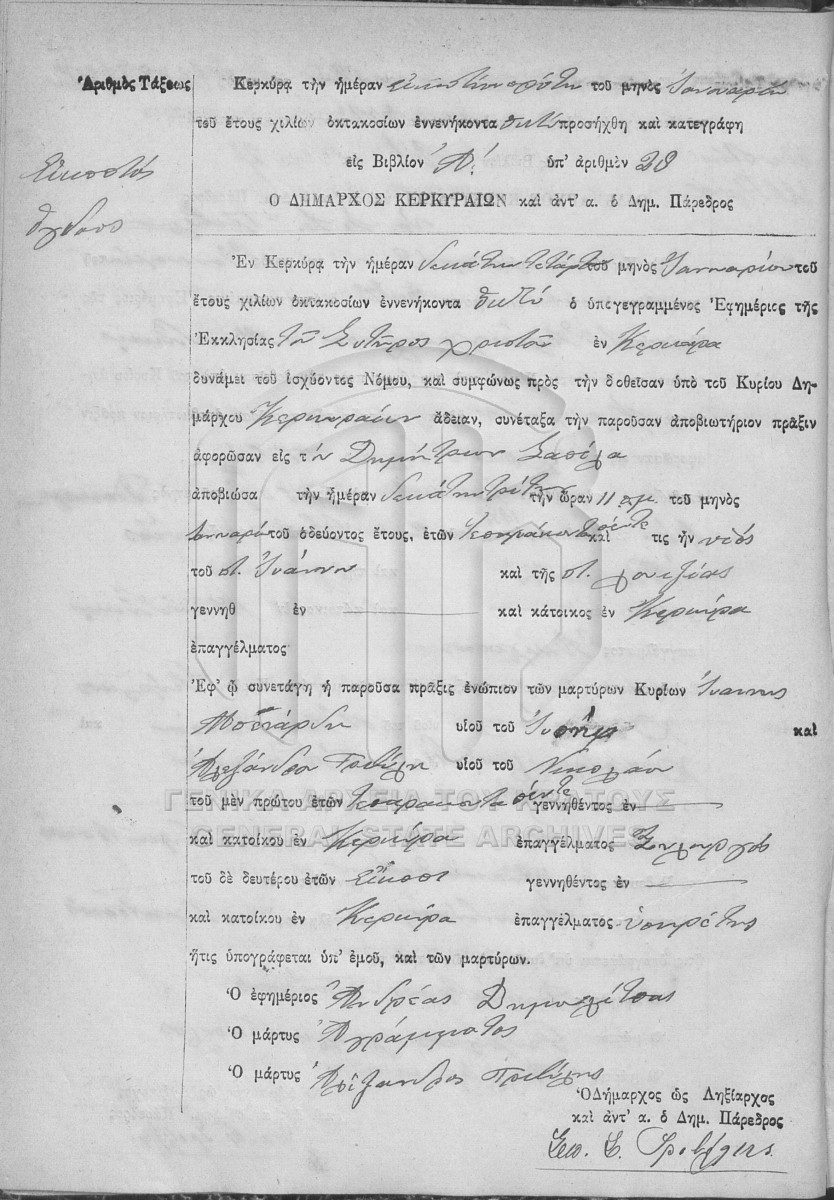 Ἀριθμὸς Τάξεως
Εἰκοστός
ὄγδοος
Κερκύρᾳ τὴν ἡμέραν εἰκοστὴν πρώτην τοῦ μηνὸς Ἰανουαρίου
τοῦ ἔτους χιλίων ὀκτακοσίων ἐννενήκοντα ὀκτὼ προσήχθη καὶ κατεγράφη
εἰς Βιβλίον Α΄. ὑπ' ἀριθμὸν 28
Ο ΔΗΜΑΡΧΟΣ ΚΕΡΚΥΡΑΙΩΝ καὶ ἀντ' α. ὁ Δημ. Πάρεδρος
Ἐν Κερκύρᾳ τὴν ἡμέραν δεκάτην τετάρτην τοῦ μηνὸς Ἰανουαρίου τοῦ
ἔτους χιλίων ὀκτακοσίων ἐννενήκοντα ὀκτὼ ὁ ὑπογεγραμμένος Ἐφημέριος τῆς
Ἐκκλησίας τοῦ Σωτῆρος Χριστοῦ ἐν Κερκύρᾳ
δυνάμει τοῦ ἰσχύοντος Νόμου, καὶ συμφώνως πρὸς τὴν δοθεῖσαν ὑπὸ τοῦ Κυρίου Δη-
μάρχου Κερκυραίων ἄδειαν, συνέταξα τὴν παροῦσαν ἀποβιωτήριον πρᾶξιν
ἀφορῶσαν εἰς τὸν Δημήτριον
ἀποβιώσα τὴν ἡμέραν δεκάτην τρίτην τὴν ὥραν 11 π.μ. τοῦ μηνὸς
Ἰανουαρίου τοῦ ὁδεύοντος ἔτους, ἐτῶν τεσσαράκοντα πέντε καὶ τις ἦν υἱός
τοῦ π. Ἰωάννου καὶ τῆς π. Λουΐζας
γεννηθ ἐν καὶ κάτοικος ἐν Κερκύρᾳ
ἐπαγγέλματος
Ἐφ' ᾧ συνετάγη ἡ παροῦσα πρᾶξις ἐνώπιον τῶν μαρτύρων Κυρίων Ἰωάννης
υἱοῦ τοῦ Ἰωσήφ καὶ
Ἀλεξάνδρου υἱοῦ τοῦ Νικολάου
τοῦ μὲν πρώτου ἐτῶν τεσσαράκοντα πέντε γεννηθέντος ἐν
ΓΕΝΙΚΑ ΑΡΧΕΙΑ ΤΟΥ ΚΡΑΤΟΥΣ
GENERAL STATE ARCHIVES
καὶ κατοίκου ἐν Κερκύρᾳ ἐπαγγέλματος ξυλουργός
τοῦ δὲ δευτέρου ἐτῶν εἴκοσι γεννηθέντος ἐν
καὶ κατοίκου ἐν Κερκύρᾳ ἐπαγγέλματος ὑπηρέτης
ἥτις ὑπογράφεται ὑπ' ἐμοῦ, καὶ τῶν μαρτύρων.
Ὁ ἐφημέριος Ἀνδρέας Δημουλίτσας
Ὁ μάρτυς Ἀγράμματος
Ὁ μάρτυς Ἀλέξανδρος
Ὁ Δήμαρχος ὡς Ληξίαρχος
καὶ ἀντ' α. ὁ Δημ. Πάρεδρος